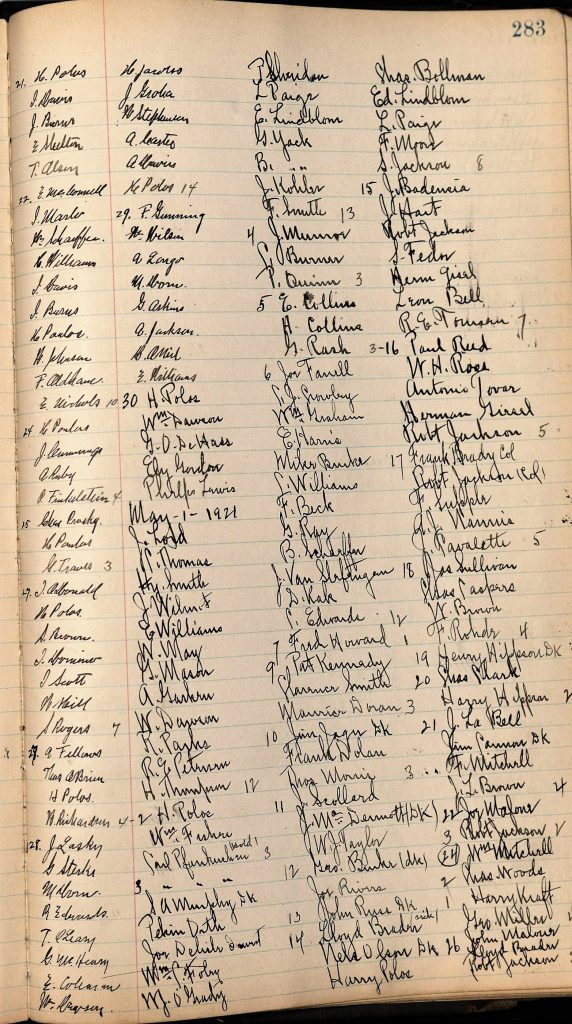 283
21. H. Polus
I. Davis
J. Burns
E. Shelton
T. Olsen
22. E. McConnell
J. Marler
Wm. Schaeffer
H. Williams
I. Davis
J. Burns
H. Poulos.
H. Johnson
E. Nichols 10
24. H. Poulos
J. Cummings
A. Ruby
P. Finkelstein 4
25 Chas Prosky.
H. Poulos
G. Traves 3
27. J. McDonald
H. Polos
S. Brown.
J. Scott
N. Hill
S. Rogers 7
A. Fellows
Thos O'Brien
H. Polos.
N. Richardson 4
28. J. Lasky
G. Sterks
M. Horn.
R. Edwards.
T. O'Leary
G. McHenry
E. Coleman
Wm. Dawson.
H. Jacobs
J. Groha
N Stephenson
A. Caster
A. Davis
H. Polos 14
29. F. Gunning
Wm. Wilson
A. Longo
M. Horn.
G. Askins
A. Jackson.
E. Williams
30 H. Polos
Wm Dawson
G. O. DeHass
Edy Gordon
Phillps Lewis
May-1-1921
J. Lord
P. Thomas
Hy. Smith
J. Wilmot
E Williams
W. May
G. Mason
W. Dawson
H. Parks
R. G. Petersen
H. Thompson 12
2 H. Polos
Wm Fisher
3
S A Murphy DK
Wm. S. Foley
M. J. O'Grady
P Sheridan
L Paige
E. Lindblom
G. Yack
B. " "
J. Kohler
F. Smith 13
4 J. Munroe
S. Burner
P. Quinn 3
5 E. Collins
H. Collins
G. Rash 3
6 Joe Farrell
S. J. Crowley
Wm Graham
E. Harris
Mike Burke
S. Williams
F. Beck
G. Ray
B. Schaffer
J. Van Steftigen
D. Kak
S. Edwards 12
7 Fred Howard 1
9 Pat Kennedy
Clarence Smith
Maurice Doran 3
10 Jim Jegu DK
Frank Dolan
Thos Morris 3
11 J. Scollard
J. McDermott (DK)
W. J. Taylor 3
12 Geo. Burke (dk)
Joe Rivers 2
13 John Russ DK 1
14 Lloyd Brader
Nels Olson DK
Harry Polos
Chas. Bollman
Ed. Lindblom
L. Paige
F. Moor
S. Jackson 8
15 J. Badensia
J. Hart
Robt Jackson
S. Fedor
Herm Gisel
Leon Bell
R. E. Tomson 7
16 Paul Reed
W. H. Ross
Antonio Tovar
Herman Giesel
Robt Jackson 5
17 Frank Brady Col
Robt Jackson (Col)
F. Supper
A. J. Mannie
J. Pavalette 5
18 Jas Sullivan
Chas Caspers
W. Brown
F. Rohde 4
19 Henry Hippson DK
20 Chas Clark
Harry Hippson 2
21 J. La Bell
Jim Cannon DK
F. Mitchell
S. L. Brown 4
22 Joe Malone
Robt Jackson 2
24 Wm Mitchell
Chas. Woods
Harry Kraft
Geo Miller 4
26 John Malone
Lloyd Brader
Robt Jackson 3